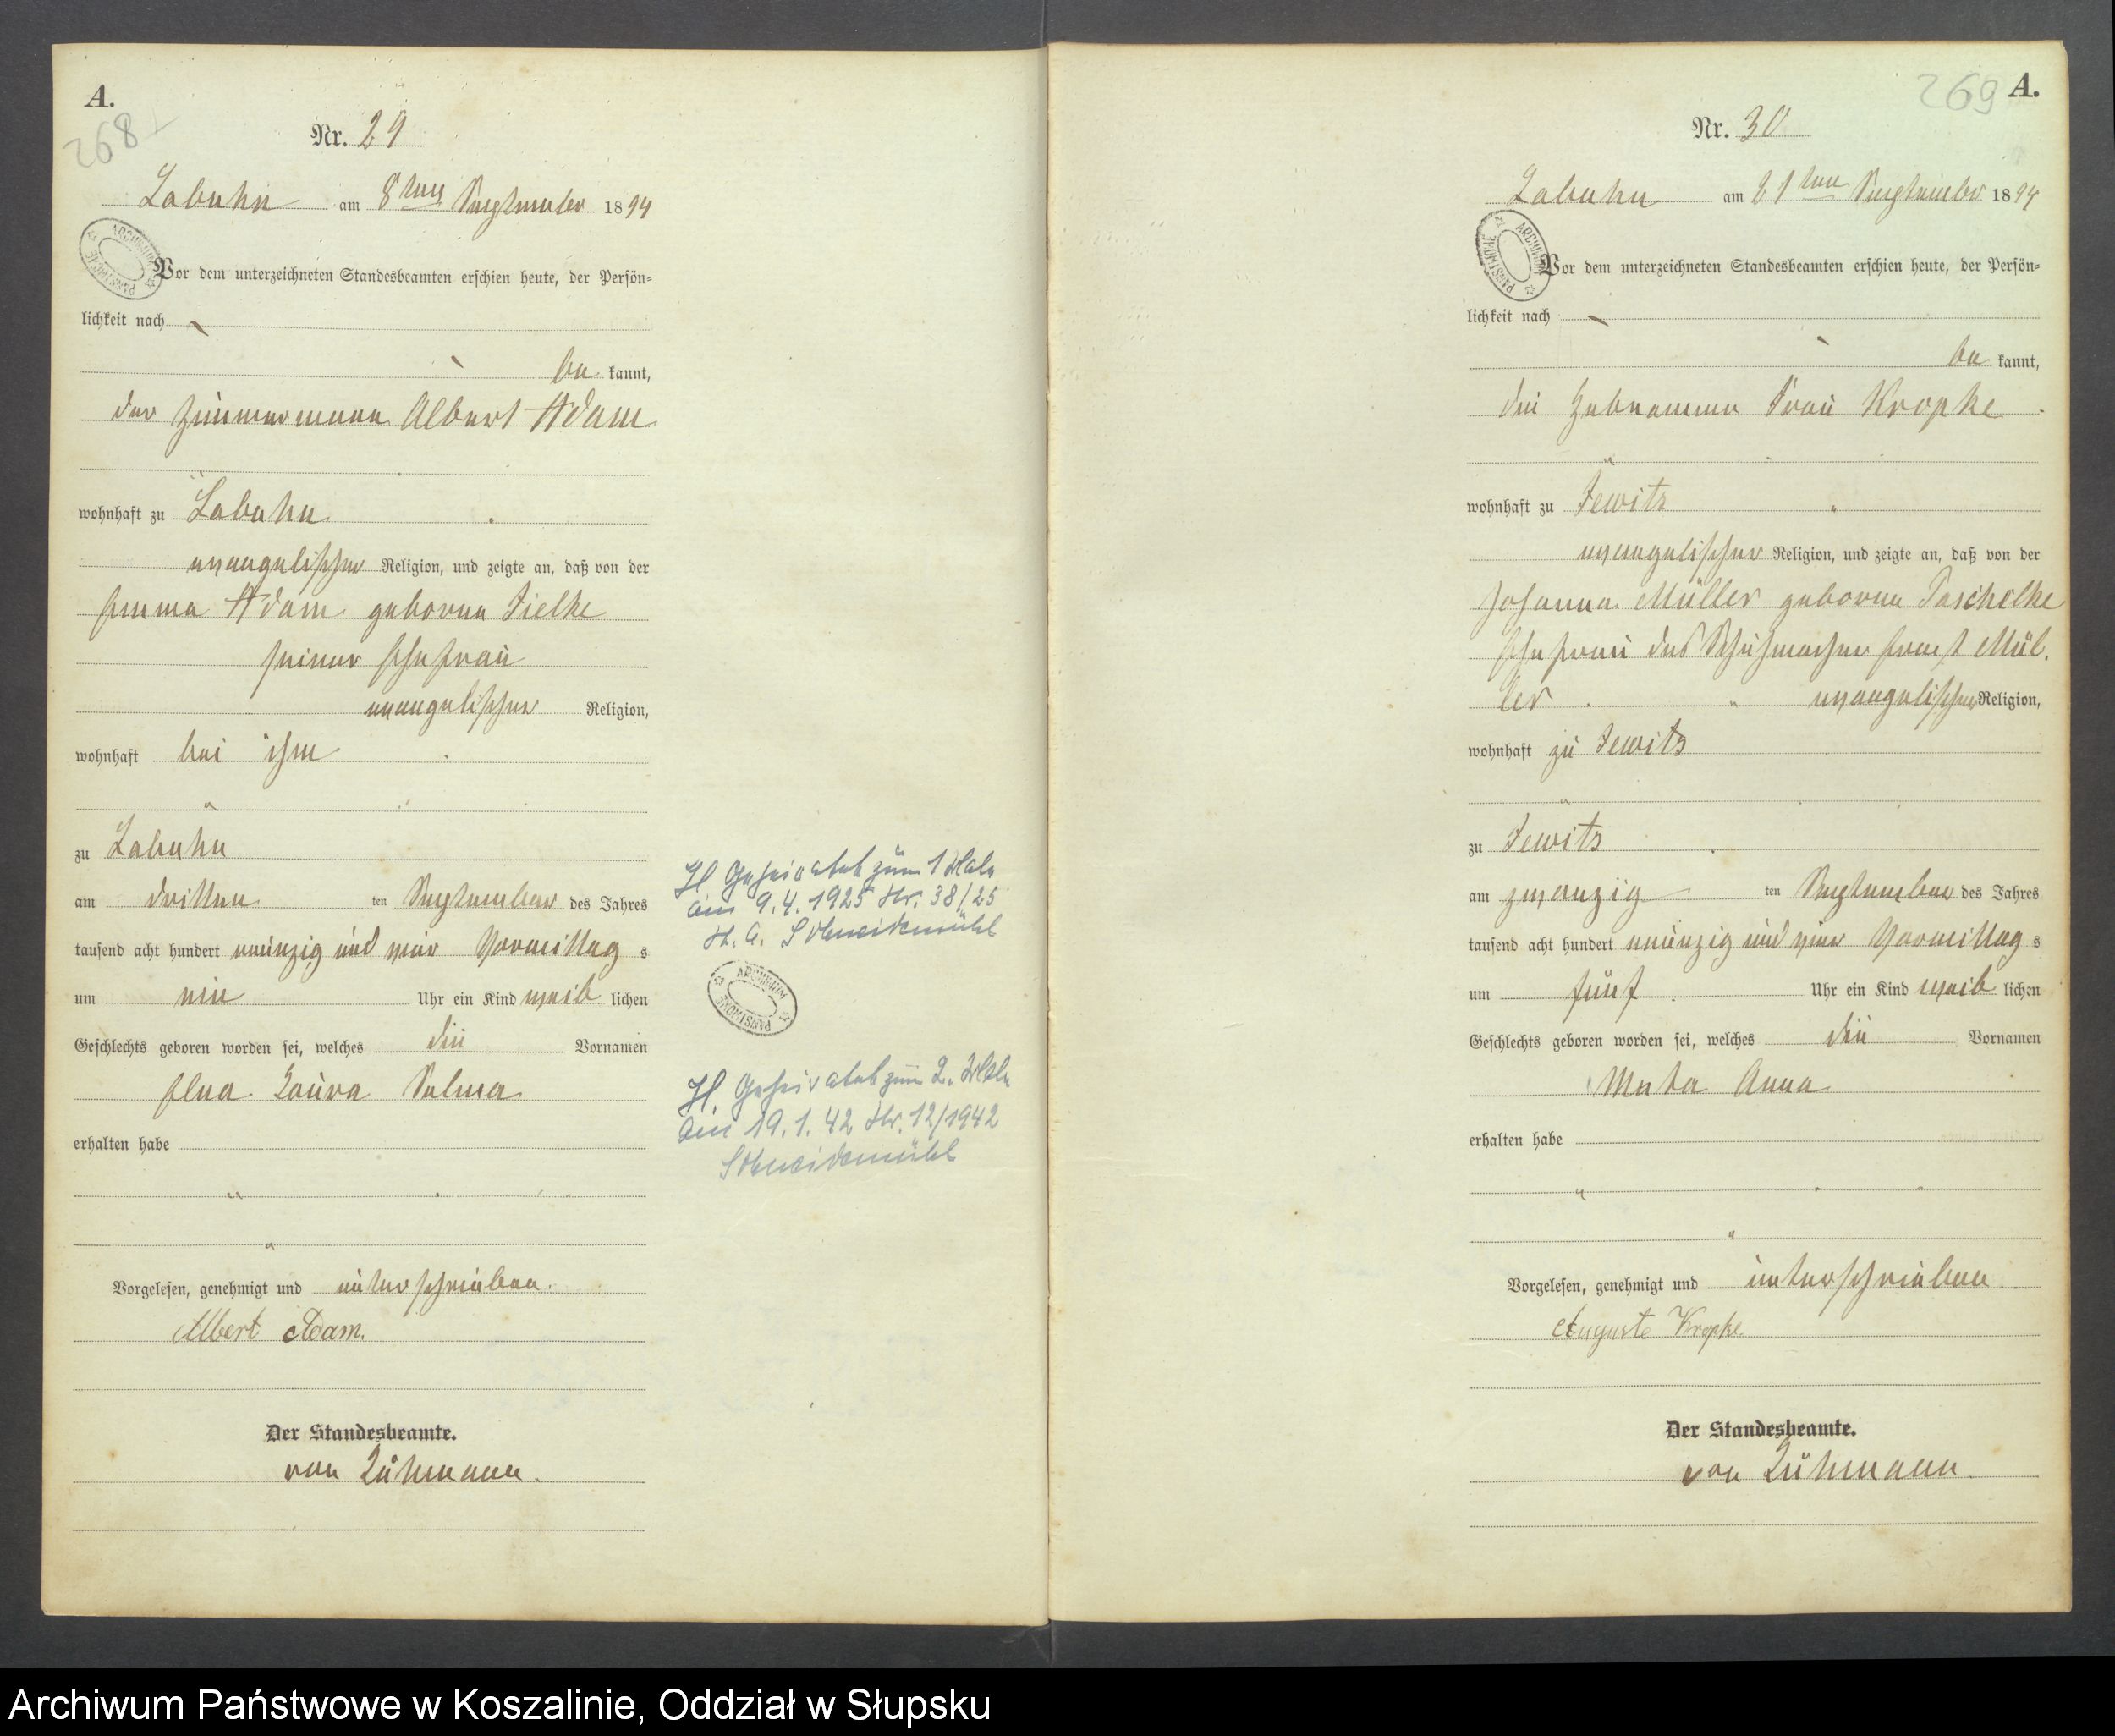 A.
268
Nr. 29
Labuhn am 8ten September 1894
Vor dem unterzeichneten Standesbeamten erschien heute, der Persön-
lichkeit nach
be kannt,
der Zimmermann Albert Adam
wohnhaft zu Labuhn
evangelischer Religion, und zeigte an, daß von der
Emma Adam geborne Zielke
seiner Ehefrau
evangelischer Religion,
wohnhaft bei ihm
zu Labuhn
am dritten ten September des Jahres
tausend acht hundert neunzig und vier Vormittag s
um ein Uhr ein Kind weib lichen
Geschlechts geboren worden sei, welches die Vornamen
Laura Selma
erhalten habe
Vorgelesen, genehmigt und unterschrieben.
Albert Adam.
Der Standesbeamte.
von Lühmann.
H. Geheiratet zum 1 Male
am 9.4.1925 Nr. 38/25
St. A. Schneidemühl
ARCHIWUM PAŃSTWOWE
H. Geheiratet zum 2. Male
am 19.1.42 Nr. 12/1942
Schneidemühl
269 A.
Nr. 30
Labuhn am 21ten September 1894
Vor dem unterzeichneten Standesbeamten erschien heute, der Persön-
lichkeit nach
be kannt,
die Hebeamme Frau Kropke
wohnhaft zu Zewitz
evangelischer Religion, und zeigte an, daß von der
Johanna Müller geborne Paschelke
Ehefrau des Schuhmacher Ernst Mül.
ler evangelischer Religion,
wohnhaft zu Zewitz
zu Zewitz
am zwanzig ten September des Jahres
tausend acht hundert neunzig und vier Vormittag s
um fünf Uhr ein Kind weib lichen
Geschlechts geboren worden sei, welches die Vornamen
Meta Anna
erhalten habe
Vorgelesen, genehmigt und unterschrieben.
Auguste Kropke.
Der Standesbeamte.
von Lühmann.
Archiwum Państwowe w Koszalinie, Oddział w Słupsku